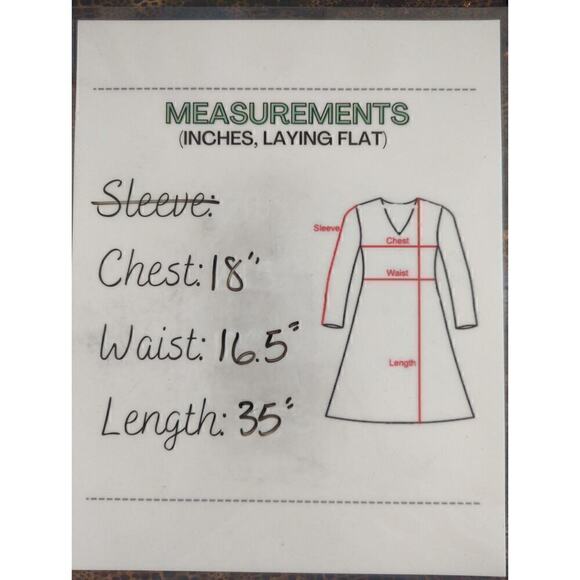 MEASUREMENTS
(INCHES, LAYING FLAT)
Sleeve:
Chest: 18"
Waist: 16.5"
Length: 35"
Sleeve
Chest
Waist
Length